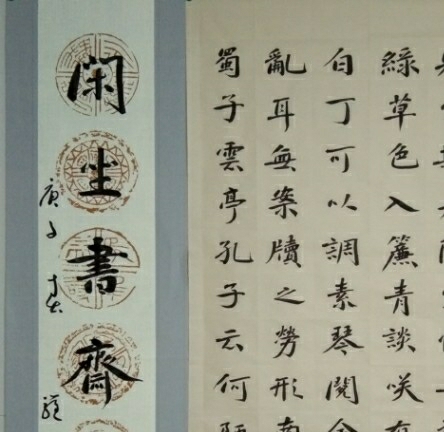 綠草色入簾青談咲有
白丁可以調素琴閱金
亂耳無案牘之勞形南
蜀子雲亭孔子云何陋
閑坐書齋
庚子